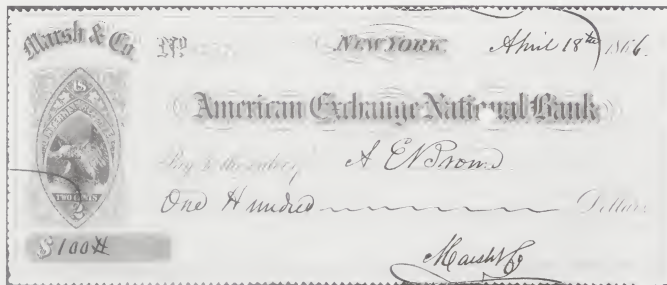 Marsh & Co. No. NEW YORK, April 18th 1866.
American Exchange National Bank
Pay to the order of A E Brown
One Hundred Dollars
TWO CENTS
2
$100
Marsh & Co